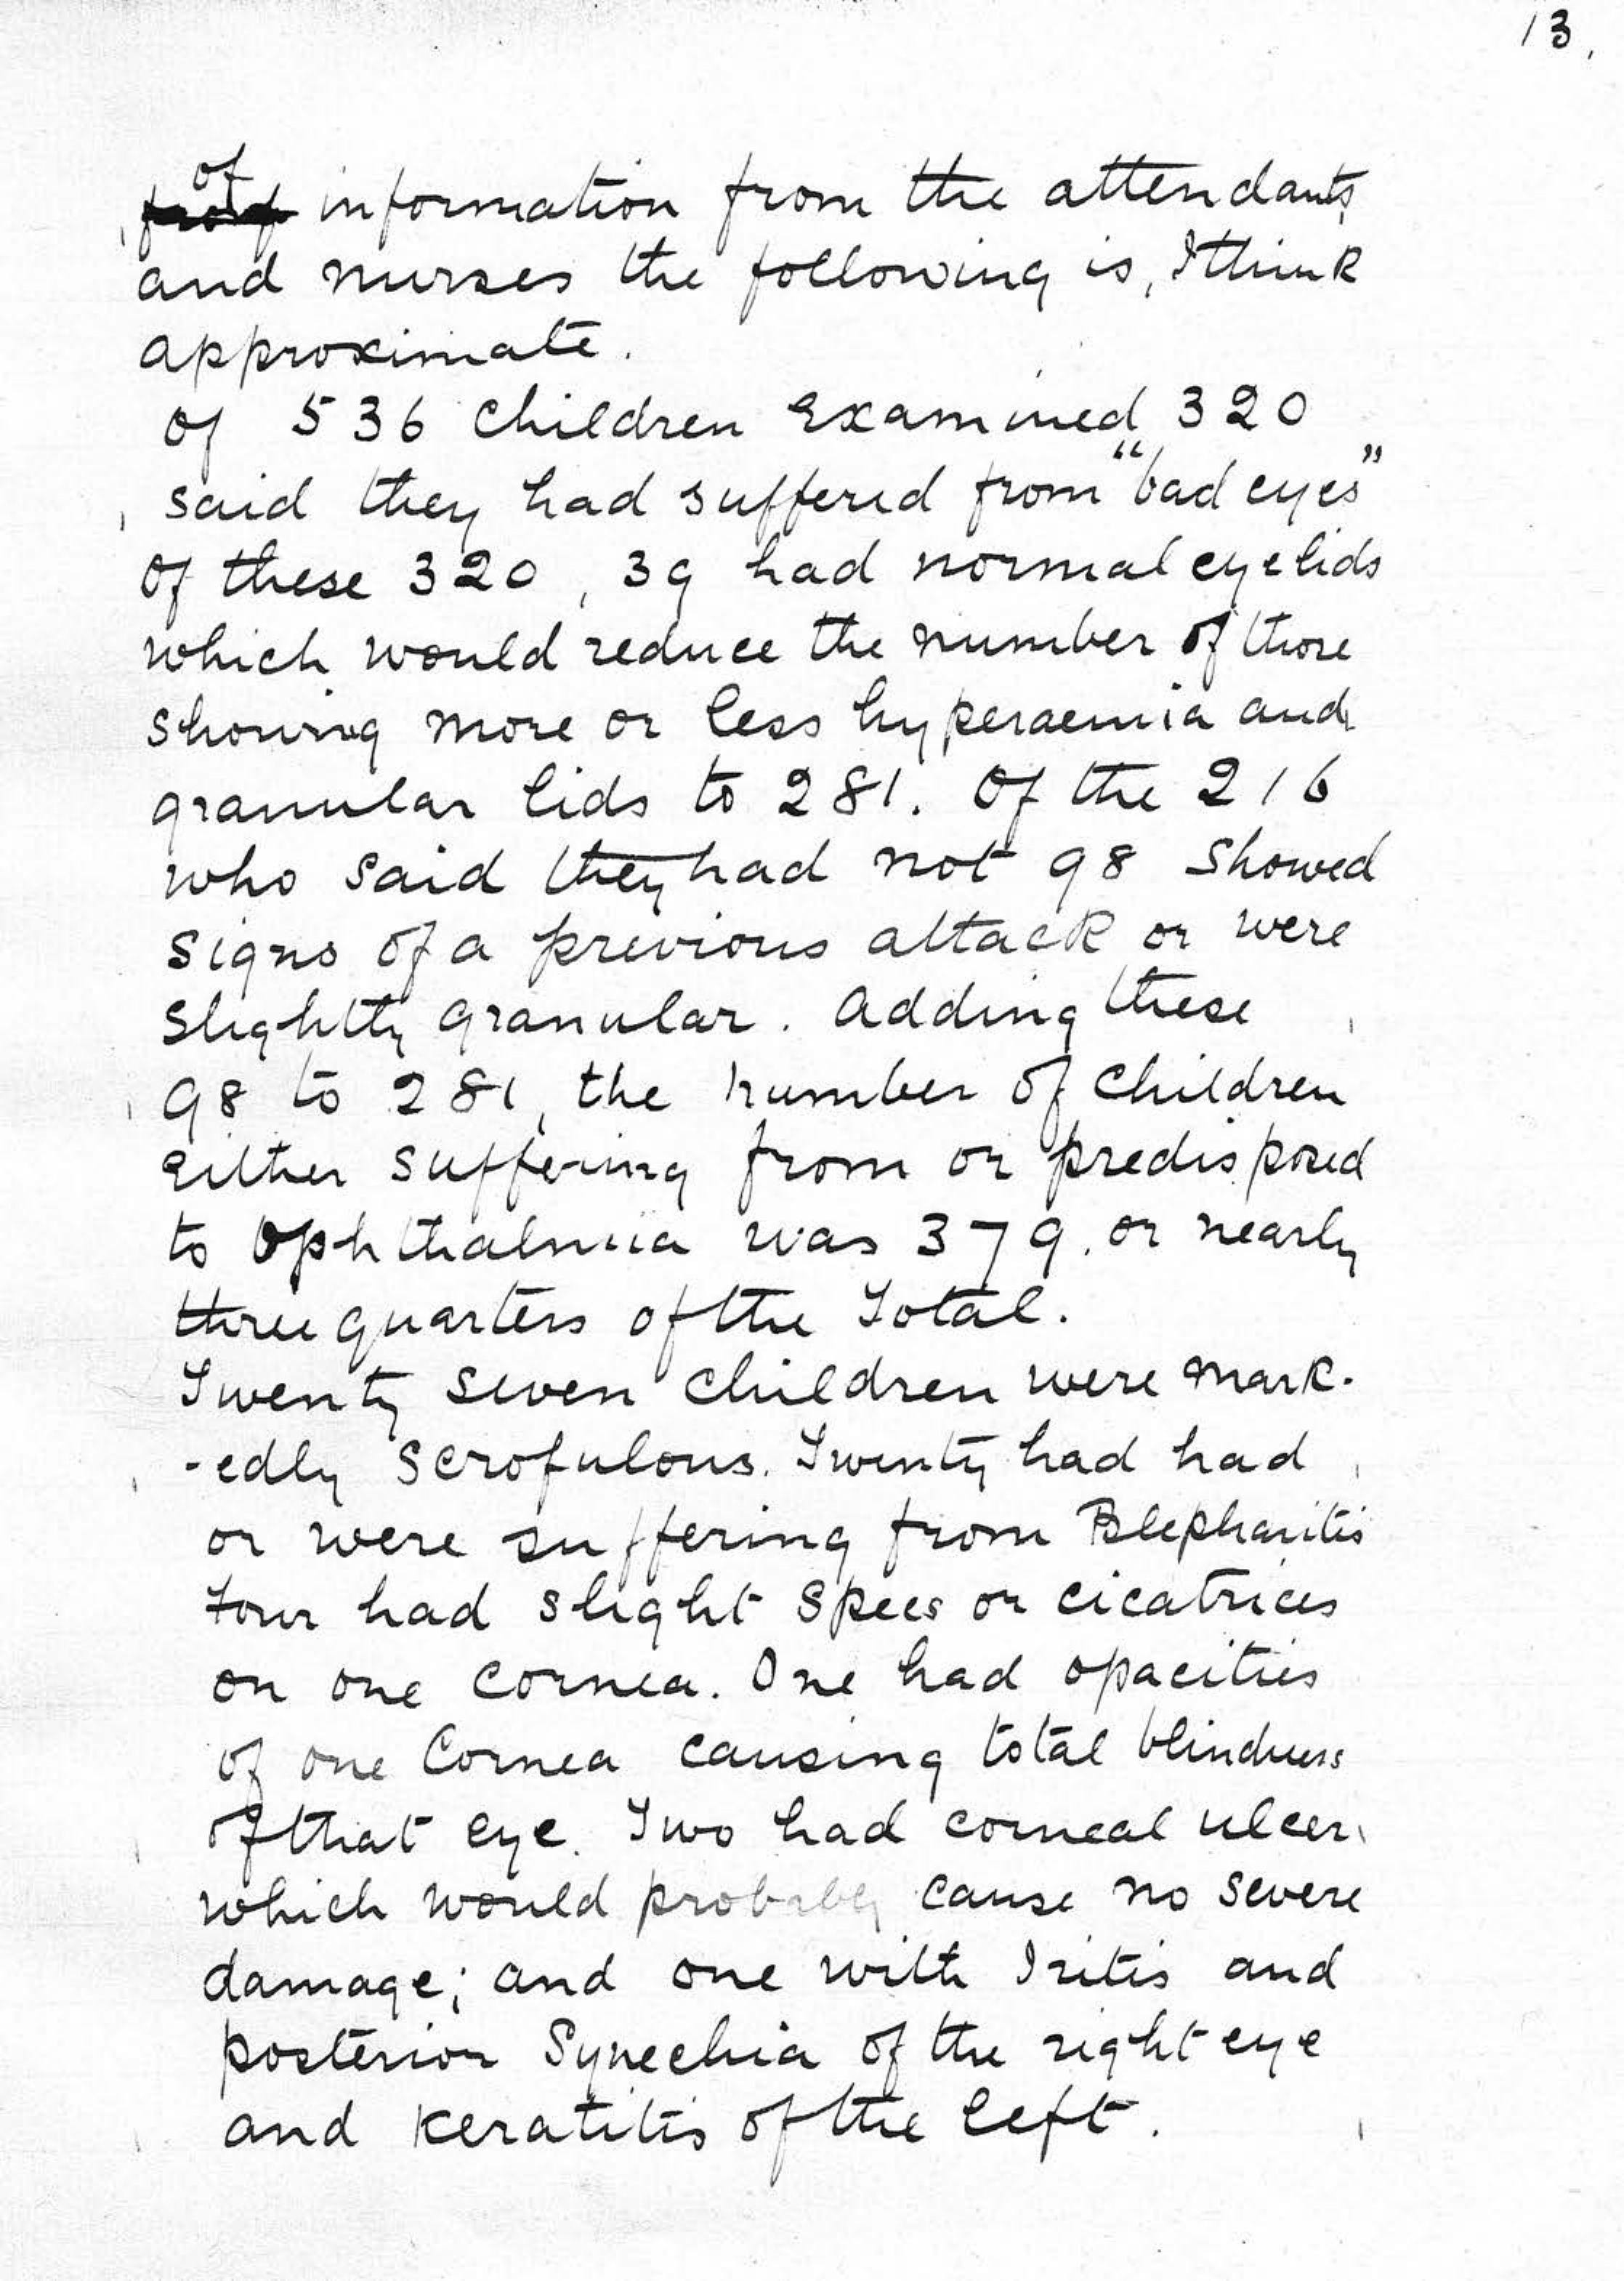 13.
of
information from the attendants
and nurses the following is, I think
approximate.
Of 536 Children Examined 320
said they had suffered from "bad eyes"
Of these 320, 39 had normal eyelids
which would reduce the number of those
showing more or less hyperaemia and
granular lids to 281. Of the 216
who said they had not 98 showed
signs of a previous attack or were
slightly granular. Adding these
98 to 281, the number of children
Either suffering from or predisposed
to Ophthalmia was 379. or nearly
three quarters of the Total.
Twenty seven children were mark-
-edly Scrofulous. Twenty had had
or were suffering from Blepharitis
four had slight specs or cicatrices
on one cornea. One had opacities
of one Cornea causing total blindness
of that eye. Two had corneal ulcers
which would probably cause no severe
damage; and one with Iritis and
posterior Synechia of the right eye
and Keratitis of the left.